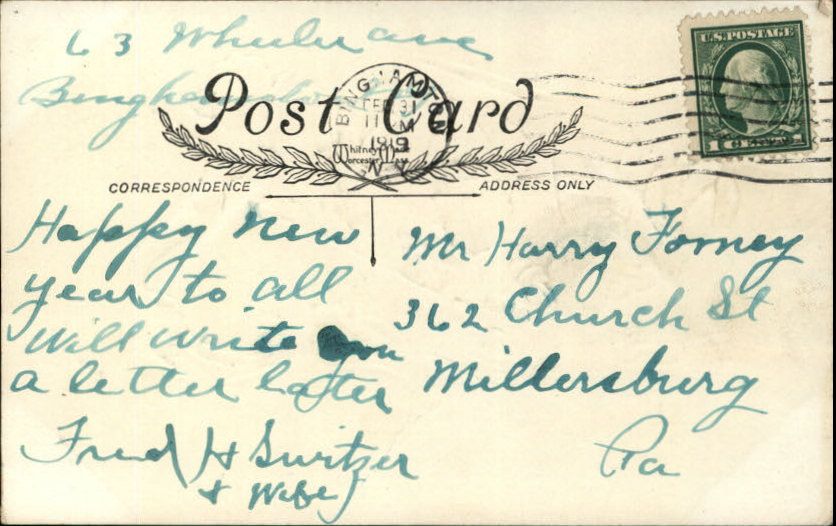 63 Wheeler ave
Binghamton
Post Card
BINGHAMTON
DEC 31
11 M
1919
N.Y.
Whitney Made
Worcester, Mass
U.S. POSTAGE
1 CENT 1
CORRESPONDENCE
ADDRESS ONLY
Happy New
year to all
Will write you
a letter later
Fred H Switzer
& Wife
Mr Harry Forney
362 Church St
Millersburg
Pa